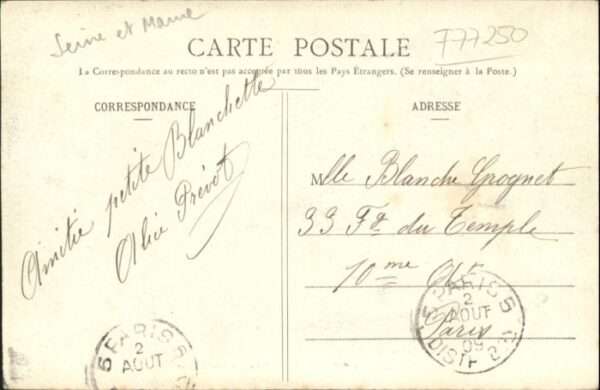 Seine et Marne
F77250
CARTE POSTALE
La Correspondance au recto n'est pas acceptée par tous les Pays Étrangers. (Se renseigner à la Poste.)
CORRESPONDANCE
Amitié petite Blanchette
Alice Prévot
ADRESSE
Mlle Blanche Grognet
33 Fg du Temple
10me Art
Paris
PARIS 5
2
AOUT
PARIS 5
2
AOUT
09
DISTR